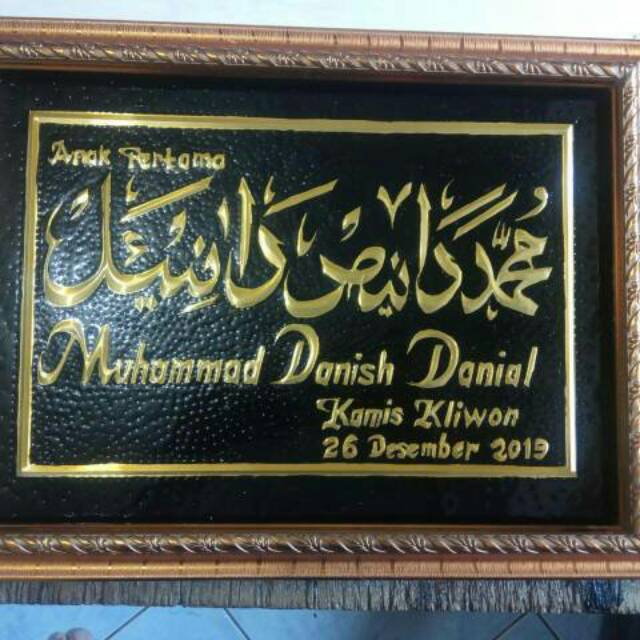 Anak Pertama
محمد دانيص دانيل
Muhammad Danish Danial
Kamis Kliwon
26 Desember 2019